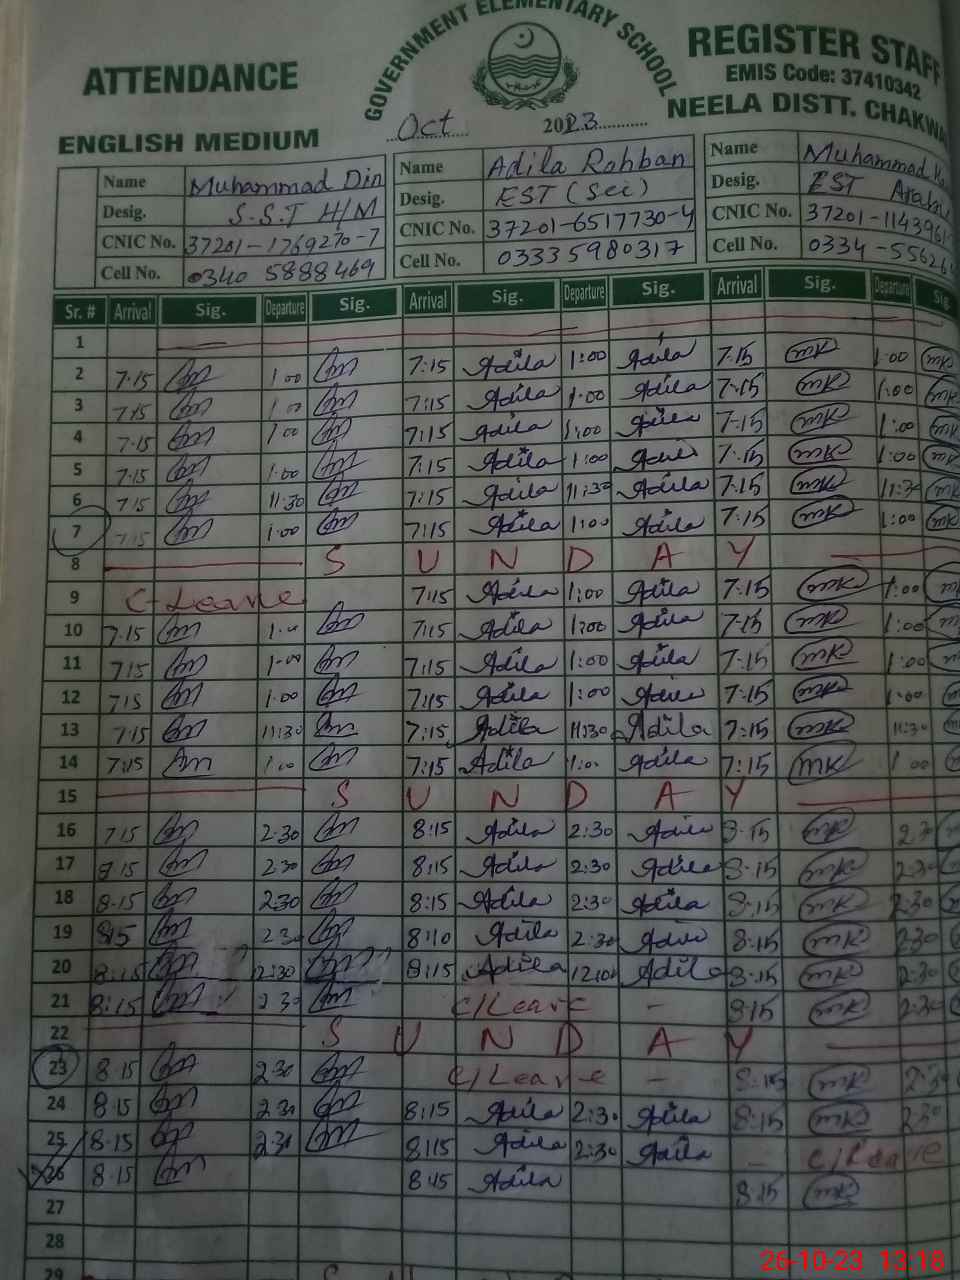 GOVERNMENT ELEMENTARY SCHOOL
ATTENDANCE
REGISTER STAFF
EMIS Code: 37410342
ENGLISH MEDIUM
Oct 2023
NEELA DISTT. CHAKWA
Name Muhammad Din Name Adila Rahban Name Muhammad
Desig. S.S.T H/M Desig. EST (Sci) Desig. EST
CNIC No. 37201-1769270-7 CNIC No. 37201-6517730-4 CNIC No. 37201-1143961-
Cell No. 0340 5888469 Cell No. 03335980317 Cell No. 0334-55626
Sr. # Arrival Sig. Departure Sig. Arrival Sig. Departure Sig. Arrival Sig. Departure Sig.
1
2 7:15 1:00 7:15 Adila 1:00 Adila 7:15 MK 1:00 MK
3 7:15 1:00 7:15 Adila 1:00 Adila 7:15 MK 1:00 MK
4 7:15 1:00 7:15 Adila 1:00 Adila 7:15 MK 1:00 MK
5 7:15 1:00 7:15 Adila 1:00 Adila 7:15 MK 1:00 MK
6 7:15 11:30 7:15 Adila 11:30 Adila 7:15 MK 11:30 MK
7 7:15 1:00 7:15 Adila 1:00 Adila 7:15 MK 1:00 MK
8 S U N D A Y
9 C-Leave 7:15 Adila 1:00 Adila 7:15 MK 1:00
10 7:15 1:00 7:15 Adila 1:00 Adila 7:15 MK 1:00
11 7:15 1:00 7:15 Adila 1:00 Adila 7:15 MK 1:00
12 7:15 1:00 7:15 Adila 1:00 Adila 7:15 MK 1:00
13 7:15 11:30 7:15 Adila 11:30 Adila 7:15 MK 11:30
14 7:15 1:00 7:15 Adila 1:00 Adila 7:15 MK 1:00
15 S U N D A Y
16 7:15 2:30 8:15 Adila 2:30 Adila 8:15 MK 2:30
17 8:15 2:30 8:15 Adila 2:30 Adila 8:15 MK 2:30
18 8:15 2:30 8:15 Adila 2:30 Adila 8:15 MK 2:30
19 8:15 2:30 8:10 Adila 2:30 Adila 8:15 MK 2:30
20 8:15 2:30 8:15 Adila Adila 8:15 MK 2:30
21 8:15 2:30 C/Leave - 8:15 MK 2:30
22 S U N D A Y
23 8:15 2:30 C/Leave - 8:15 MK 2:30
24 8:15 2:30 8:15 Adila 2:30 Adila 8:15 MK 2:30
25 8:15 2:30 8:15 Adila 2:30 Adila - C/Leave
26 8:15 8:15 Adila 8:15 MK
27
28
29
26-10-23 13:18